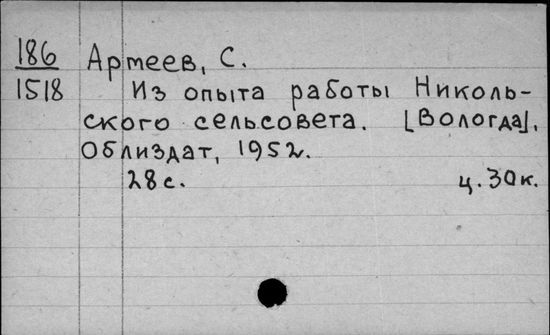 186
1518
Армеев, С.
Из опыта работы Николь-
ского сельсовета. [Вологда],
Облиздат, 1952.
28с.
ц. 30к.